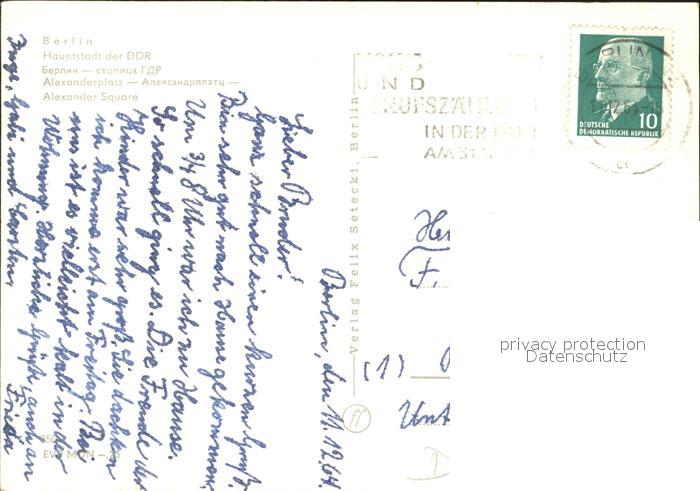 Berlin
Hauptstadt der DDR
Берлин — столица ГДР
Alexanderplatz — Александрплатц —
Alexander Square
UND
BERUFSZÄHLUNG
IN DER DDR
AM 31.12.
DEUTSCHE
DEMOKRATISCHE REPUBLIK
10
Verlag Felix Setecki, Berlin
Berlin, den 11.12.64.
Lieber Bruder!
Ganz schnell einen kurzen Gruß.
Bin sehr gut nach Hause gekommen,
Um 3/4 8 Uhr war ich zu Hause.
So schnell ging es. Die Freude der
Kinder war sehr groß, sie dachten
ich komme erst am Freitag. Bei
uns ist es vielleicht kalt in der
Wohnung. Herzliche Grüße, auch an
Inge, Gabi und
Frieda
He
F.
(1)
Unt
D
privacy protection
Datenschutz